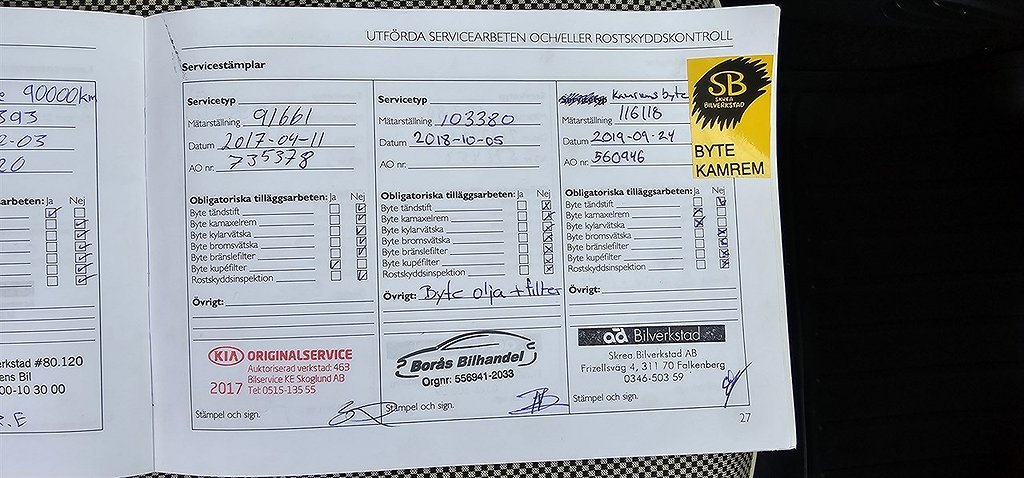 UTFÖRDA SERVICEARBETEN OCH/ELLER ROSTSKYDDSKONTROLL
Servicestämplar
90000km
393
-03
20
arbeten: Ja Nej
erkstad #80.120
ens Bil
00-10 30 00
R.E
Servicetyp
Mätarställning 91661
Datum 2017-04-11
AO nr. 735378
Obligatoriska tilläggsarbeten: Ja Nej
Byte tändstift
Byte kamaxelrem
Byte kylarvätska
Byte bromsvätska
Byte bränslefilter
Byte kupéfilter
Rostskyddsinspektion
Övrigt:
KIA ORIGINALSERVICE
Auktoriserad verkstad: 463
Bilservice KE Skoglund AB
2017 Tel: 0515-135 55
Stämpel och sign.
Servicetyp
Mätarställning 103380
Datum 2018-10-05
AO nr.
Obligatoriska tilläggsarbeten: Ja Nej
Byte tändstift
Byte kamaxelrem
Byte kylarvätska
Byte bromsvätska
Byte bränslefilter
Byte kupéfilter
Rostskyddsinspektion
Övrigt: Byte olja + filter
Borås Bilhandel
Orgnr: 556941-2033
Stämpel och sign.
Servicetyp Kamremsbyte
Mätarställning 116118
Datum 2019-09-24
AO nr. 560946
Obligatoriska tilläggsarbeten: Ja Nej
Byte tändstift
Byte kamaxelrem
Byte kylarvätska
Byte bromsvätska
Byte bränslefilter
Byte kupéfilter
Rostskyddsinspektion
Övrigt:
ad Bilverkstad
Skrea Bilverkstad AB
Frizellsväg 4, 311 70 Falkenberg
0346-503 59
Stämpel och sign.
SB
SKREA
BILVERKSTAD
BYTE
KAMREM
27